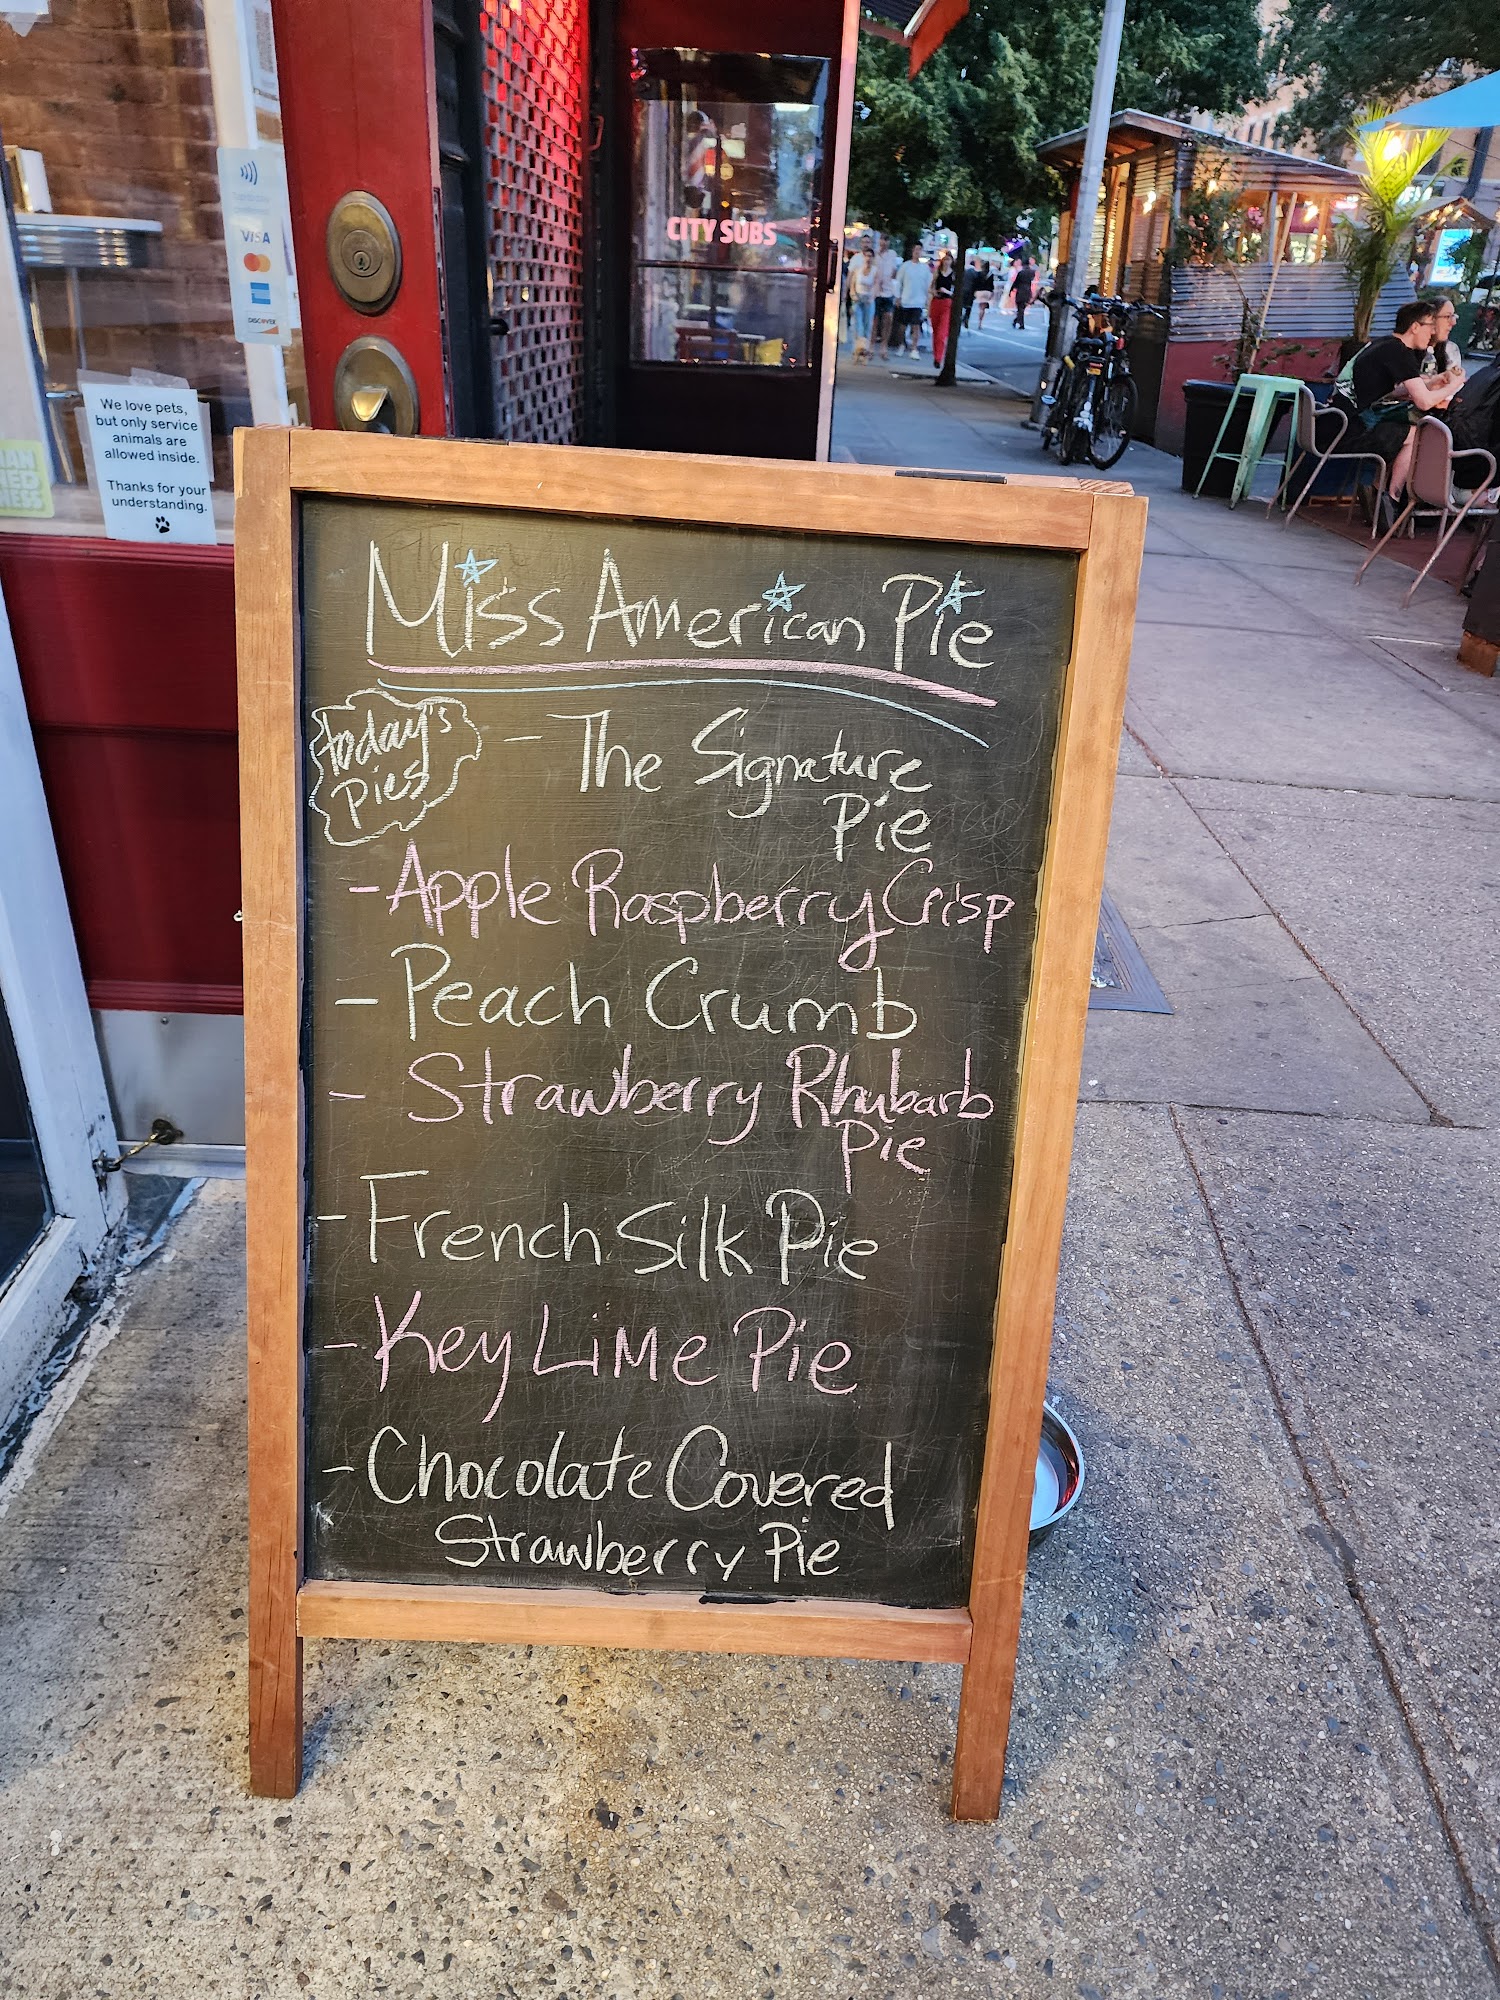 CITY SUBS
VISA
DISCOVER
We love pets,
but only service
animals are
allowed inside.
Thanks for your
understanding.
Miss American Pie
Today's
Pies
- The Signature
Pie
- Apple Raspberry Crisp
- Peach Crumb
- Strawberry Rhubarb
Pie
- French Silk Pie
- Key Lime Pie
- Chocolate Covered
Strawberry Pie